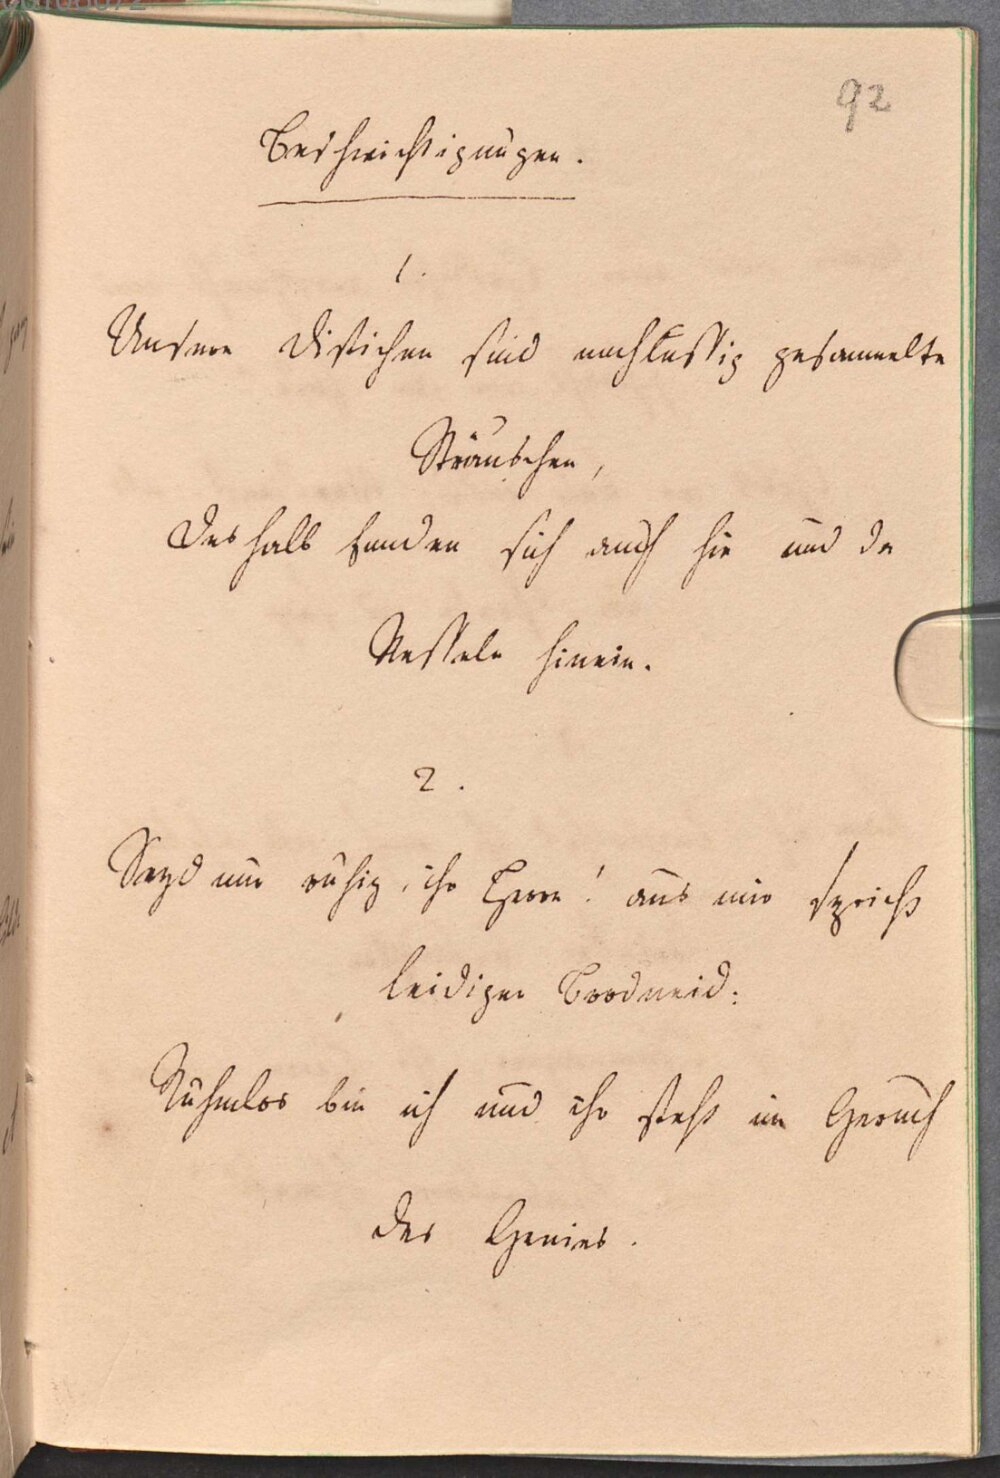 92
Beschwichtigungen.
1.
Unsere Distichen sind nachlässig gesammelte
Sträuschen,
Deshalb fanden sich auch hie und da
Nesseln hinein.
2.
Seyd nur ruhig, ihr Herrn! aus mir spricht
leidiger Brodneid:
Ruhmlos bin ich und ihr steht im Geruch
des Genies.